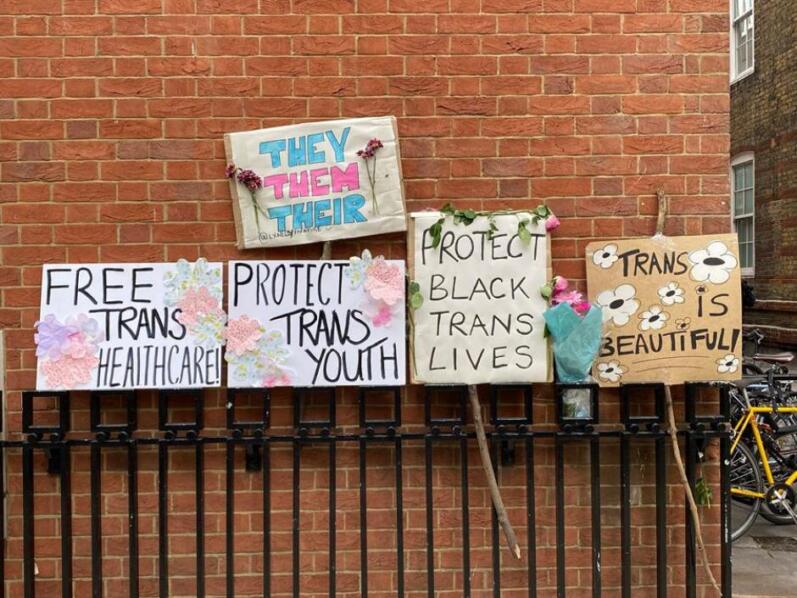 THEY
THEM
THEIR
FREE
TRANS
HEALTHCARE!
PROTECT
TRANS
YOUTH
PROTECT
BLACK
TRANS
LIVES
TRANS
IS
BEAUTIFUL!